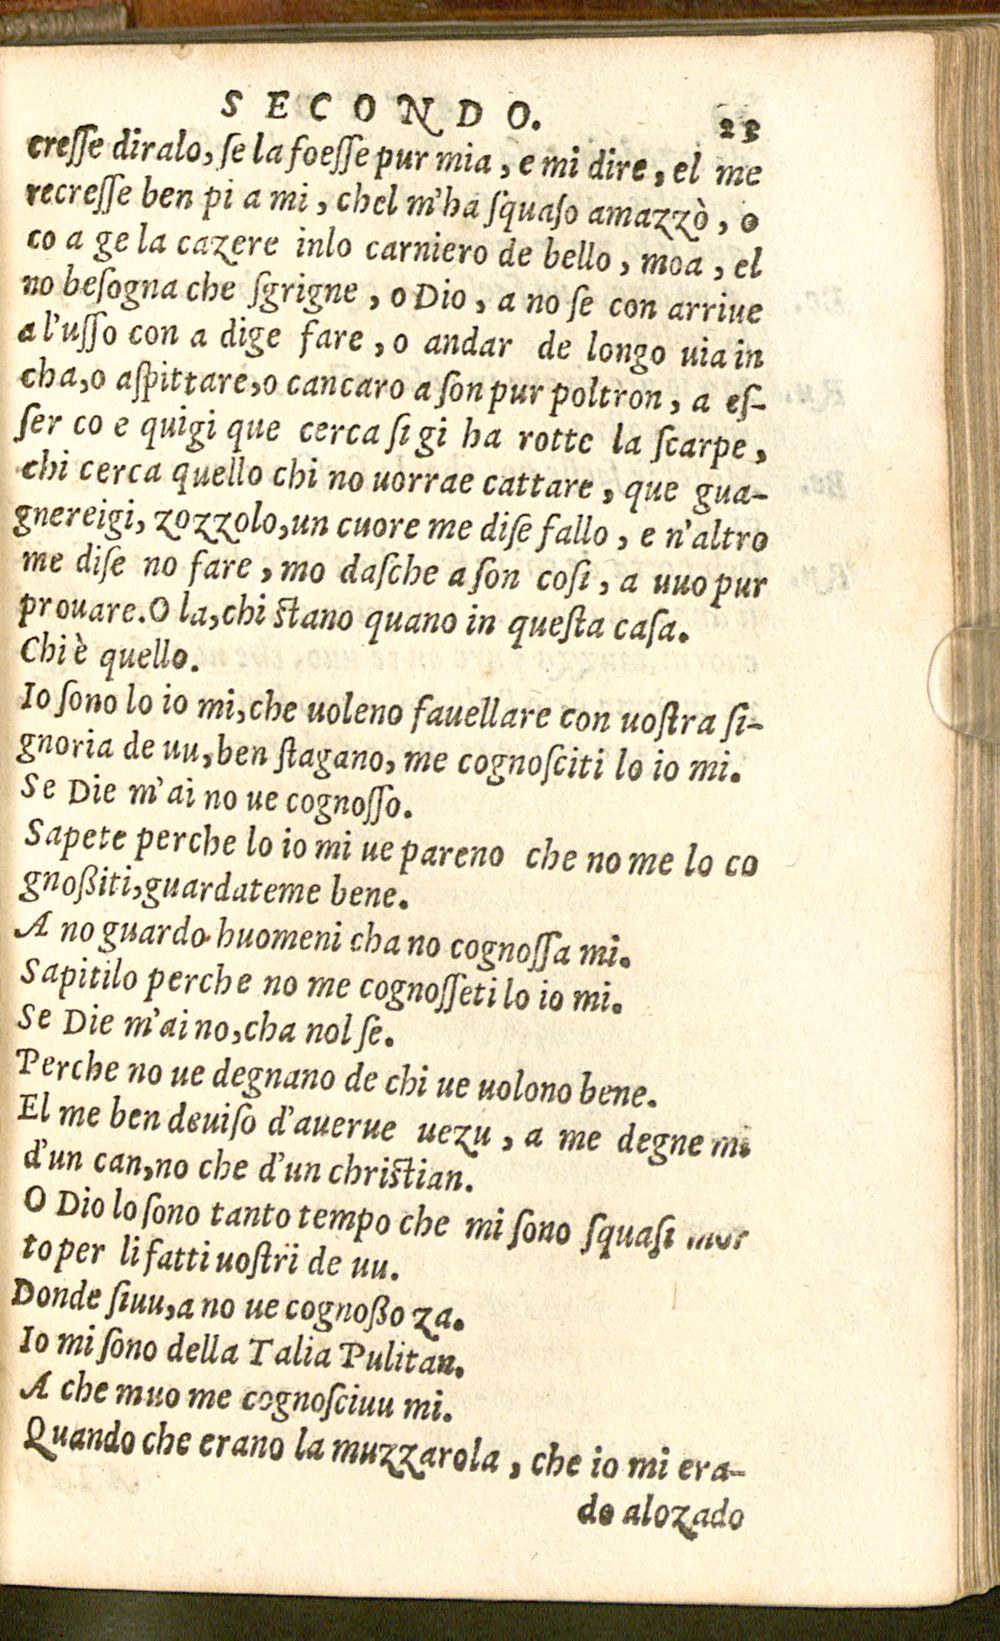 SECONDO. 23
cresse diralo, se la foesse pur mia, e mi dire, el me
recresse ben pi a mi, chel m'ha squaso amazzò, o
co a ge la cazere inlo carniero de bello, moa, el
no besogna che sgrigne, o Dio, a no se con arriue
a l'usso con a dige fare, o andar de longo uia in
cha, o aspittare, o cancaro a son pur poltron, a es-
ser co e quigi que cerca si gi ha rotte la scarpe,
chi cerca quello chi no uorrae cattare, que gua-
gnereigi, zozzolo, un cuore me dise fallo, e n'altro
me dise no fare, mo dasche a son cosi, a uuo pur
prouare. O la, chi stano quano in questa casa.
Chi è quello.
Io sono lo io mi, che uoleno fauellare con uostra si-
gnoria de uu, ben stagano, me cognosciti lo io mi.
Se Die m'ai no ue cognosso.
Sapete perche lo io mi ue pareno che no me lo co
gnoßiti, guardateme bene.
A no guardo huomeni cha no cognossa mi.
Sapitilo perche no me cognosseti lo io mi.
Se Die m'ai no, cha nol se.
Perche no ue degnano de chi ue uolono bene.
El me ben deuiso d'auerue uezu, a me degne mi
d'un can, no che d'un christian.
O Dio lo sono tanto tempo che mi sono squasi mor
to per li fatti uostri de uu.
Donde siuu, a no ue cognoßo za.
Io mi sono della Talia Pulitan.
A che muo me cognosciuu mi.
Quando che erano la muzzarola, che io mi era-
do alozado